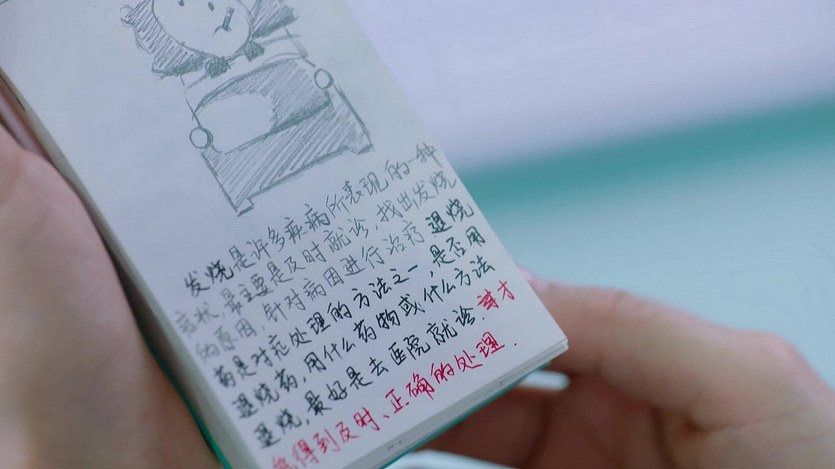 发烧是许多疾病所表现的一种
症状,最主要是及时就诊,找出发烧
的原因,针对病因进行治疗 退烧
药是对症处理的方法之一,是否用
退烧药,用什么药物或什么方法
退烧,最好是去医院就诊.才
能得到及时、正确的处理.